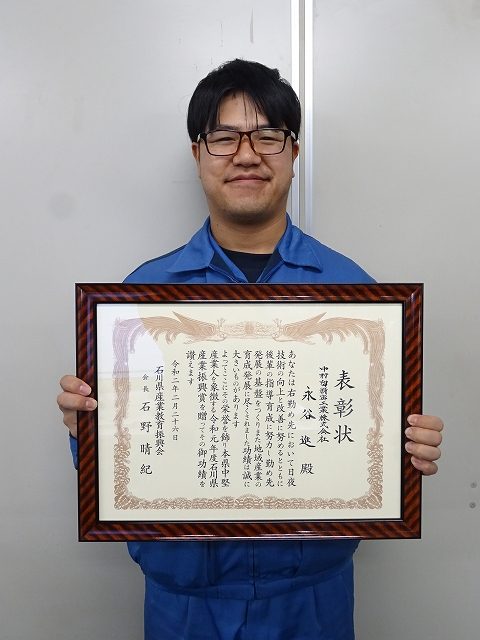 表彰状
中村留精密工業株式会社
永谷進殿
あなたは右勤め先において日夜
技術の向上と改善に努めるとともに
後輩の指導育成に努力し勤め先
発展の基盤をつくりまた地域産業の
育成発展に尽くされました功績は誠に
大きいものがあります
よってここにその栄誉を飾り本県中堅
産業人を象徴する令和元年度石川県
産業振興賞を贈ってその御功績を
讃えます
令和二年二月二十六日
石川県産業教育振興会
会長 石野晴紀